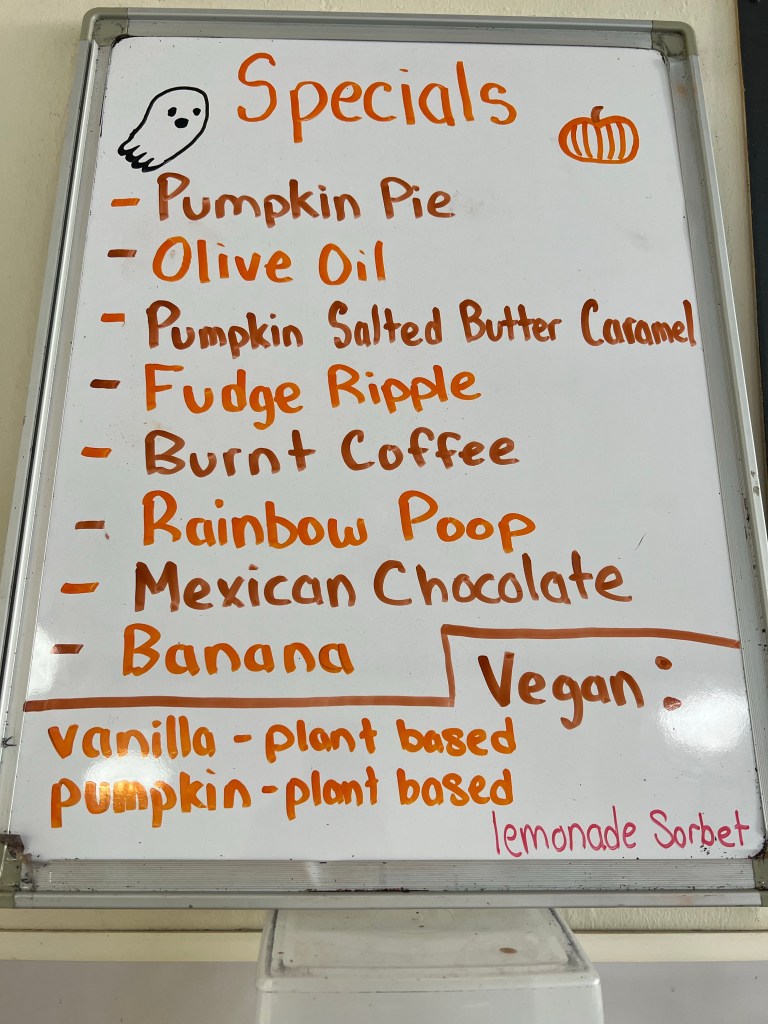 Specials
- Pumpkin Pie
- Olive Oil
- Pumpkin Salted Butter Caramel
- Fudge Ripple
- Burnt Coffee
- Rainbow Poop
- Mexican Chocolate
- Banana
Vegan:
vanilla - plant based
pumpkin - plant based
lemonade Sorbet